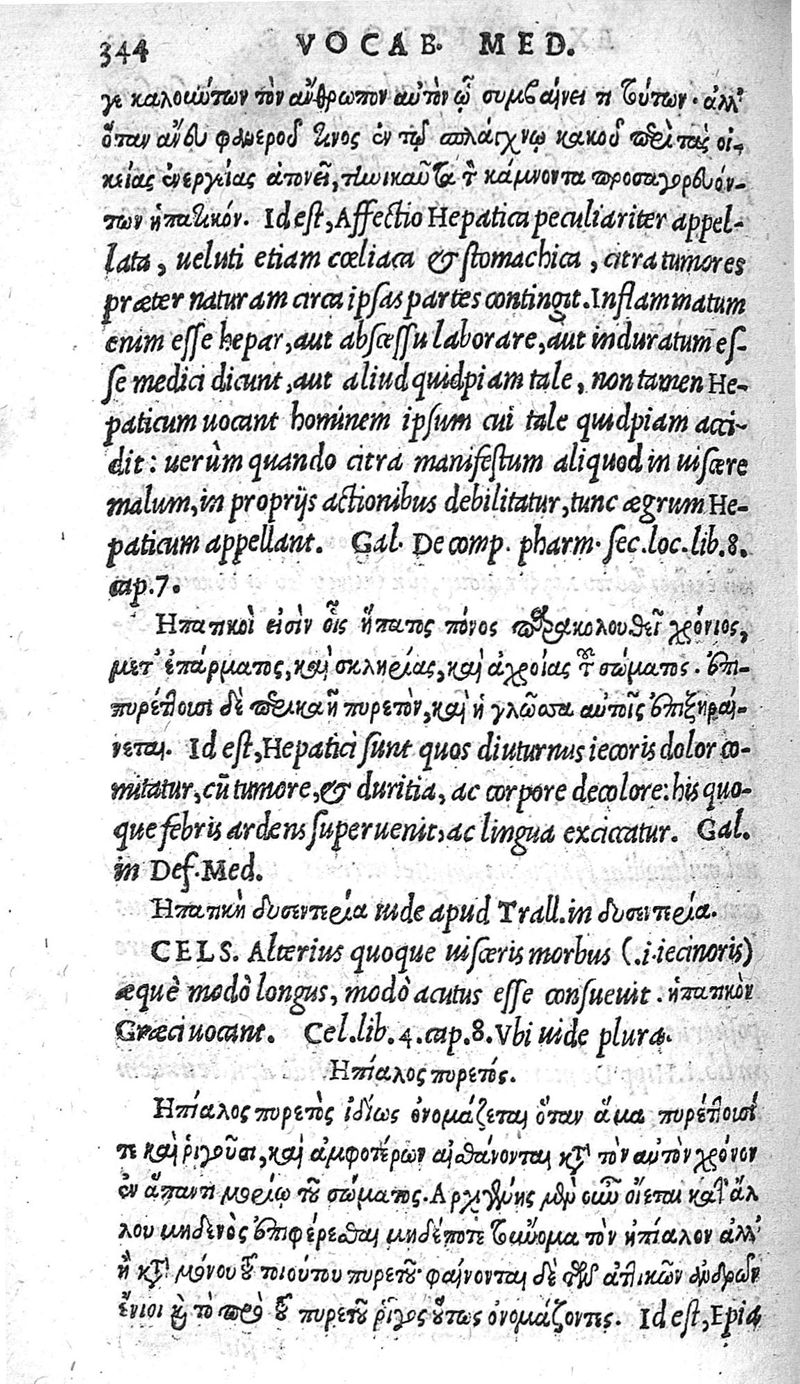 344 VOCAB. MED.
γε καλούντων τὸν ἄνθρωπον αὐτὸν ᾧ συμβαίνει τι τούτων. ἀλλ'
ὅταν ἄνευ φανεροῦ τινος ἐν τῷ σπλάγχνῳ κακοῦ περὶ τὰς οἰ-
κείας ἐνεργείας ἀτονεῖ, τηνικαῦτα τὸν κάμνοντα προσαγορευόν-
των ἡπατικόν. Id est, Affectio Hepatica peculiariter appel-
lata, ueluti etiam cœliaca & stomachica, citra tumores
præter naturam circa ipsas partes contingit. Inflammatum
enim esse hepar, aut abscessu laborare, aut induratum es-
se medici dicunt, aut aliud quidpiam tale, non tamen He-
paticum uocant hominem ipsum cui tale quidpiam acci-
dit: uerùm quando citra manifestum aliquod in uiscere
malum, in proprijs actionibus debilitatur, tunc ægrum He-
paticum appellant. Gal. De comp. pharm. sec. loc. lib. 8.
cap. 7.
Ηπατικοὶ εἰσὶν οἷς ἥπατος πόνος παρακολουθεῖ χρόνιος,
μετ' ἐπάρματος, καὶ σκληρίας, καὶ ἀχροίας τοῦ σώματος. ἐπι-
πυρέττουσι δὲ περικαῆ πυρετὸν, καὶ ἡ γλῶσσα αὐτοῖς ἐπιξηραί-
νεται. Id est, Hepatici sunt quos diuturnus iecoris dolor co-
mitatur, cũ tumore, & duritia, ac corpore decolore: his quo-
que febris ardens superuenit, ac lingua exciccatur. Gal.
in Def. Med.
Ηπατικὴ δυσεντερία uide apud Trall. in δυσεντερία.
CELS. Alterius quoque uisceris morbus (.i. iecinoris)
æquè modò longus, modò acutus esse consueuit. ἡπατικὸν
Græci uocant. Cel. lib. 4. cap. 8. Vbi uide plura.
Ηπίαλος πυρετός.
Ηπίαλος πυρετὸς ἰδίως ὀνομάζεται ὅταν ἅμα πυρέττουσί
τε καὶ ῥιγοῦσι, καὶ ἀμφοτέρων αἰσθάνονται κατὰ τὸν αὐτὸν χρόνον
ἐν ἅπαντι μορίῳ τοῦ σώματος. Αρχιγένης μὲν οὖν οἴεται κατ' ἄλ
λου μηδενὸς ἐπιφέρεσθαι μηδέποτε τοὔνομα τὸν ἠπίαλον ἀλλ'
ἢ κατὰ μόνου τοῦ τοιούτου πυρετοῦ· φαίνονται δὲ τῶν ἀττικῶν ἀνδρῶν
ἔνιοι καὶ τὸ πρὸ τοῦ πυρετοῦ ῥῖγος οὕτως ὀνομάζοντες. Id est, Epia